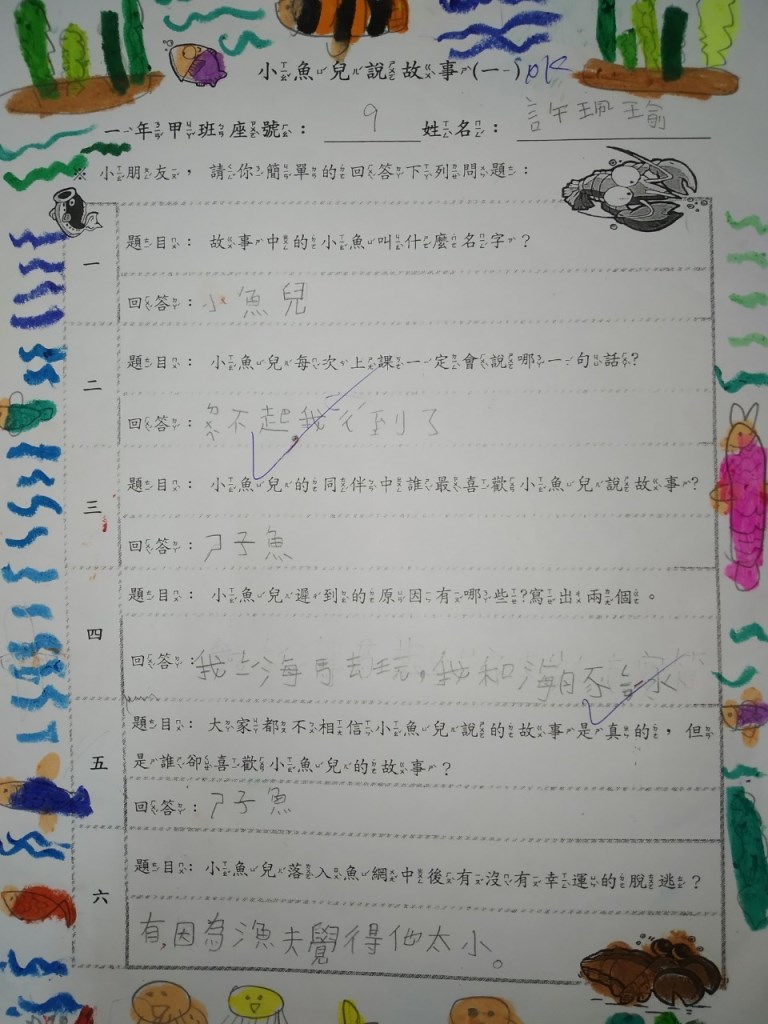 小魚兒說故事(一) ok
一年甲班座號： 9 姓名： 許珮瑜
※ 小朋友，請你簡單的回答下列問題：
一
題目：故事中的小魚叫什麼名字？
回答：小魚兒
二
題目：小魚兒每次上課一定會說哪一句話？
回答：ㄉㄨㄟ不起我ㄔˊ到了
三
題目：小魚兒的同伴中誰最喜歡小魚兒說故事？
回答：ㄕ子魚
四
題目：小魚兒遲到的原因有哪些？寫出兩個。
回答：我上海馬去玩，我和海
五
題目：大家都不相信小魚兒說的故事是真的，但
是誰卻喜歡小魚兒的故事？
回答：ㄕ子魚
六
題目：小魚兒落入魚網中後有沒有幸運的脫逃？
有，因為漁夫覺得他太小。